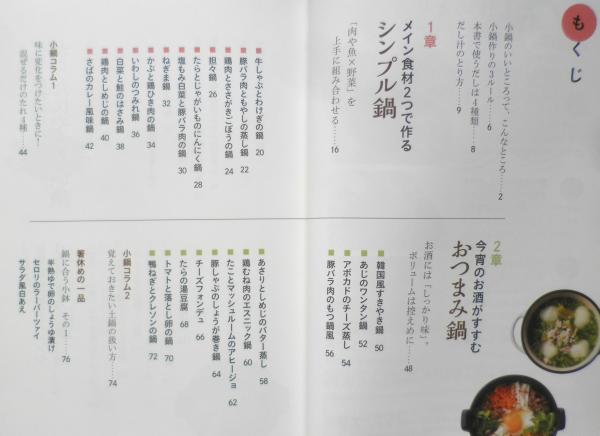 もくじ
小鍋のいいところって、こんなところ……2
小鍋作りの3ルール……6
本書で使うだしは4種類……8
だし汁のとり方……9
1章
メイン食材2つで作る
シンプル鍋
「肉や魚×野菜」を
上手に組み合わせる……16
牛しゃぶとわけぎの鍋 20
豚バラ肉ともやしの蒸し鍋 22
鶏肉とささがきごぼうの鍋 24
担々鍋 26
たらとじゃがいものにんにく鍋 28
塩もみ白菜と豚バラ肉の鍋 30
ねぎま鍋 32
かぶと鶏ひき肉の鍋 34
いわしのつみれ鍋 36
白菜と鮭のはさみ鍋 38
鶏肉としめじの鍋 40
さばのカレー風味鍋 42
小鍋コラム1
味に変化をつけたいときに!
混ぜるだけのたれ4種……44
2章
今宵のお酒がすすむ
おつまみ鍋
お酒には「しっかり味」。
ボリュームは控えめに……48
韓国風すきやき鍋 50
あじのワンタン鍋 52
アボカドのチーズ蒸し 54
豚バラ肉のもつ鍋風 56
あさりとしめじのバター蒸し 58
鶏むね肉のエスニック鍋 60
たことマッシュルームのアヒージョ 62
豚しゃぶのしょうが巻き鍋 64
チーズフォンデュ 66
たらの湯豆腐 68
トマトと落とし卵の鍋 70
鴨ねぎとクレソンの鍋 72
小鍋コラム2
覚えておきたい土鍋の扱い方……74
箸休めの一品
鍋に合う小鉢 その1……76
半熟ゆで卵のしょうゆ漬け
セロリのラーパーツァイ
サラダ風白あえ